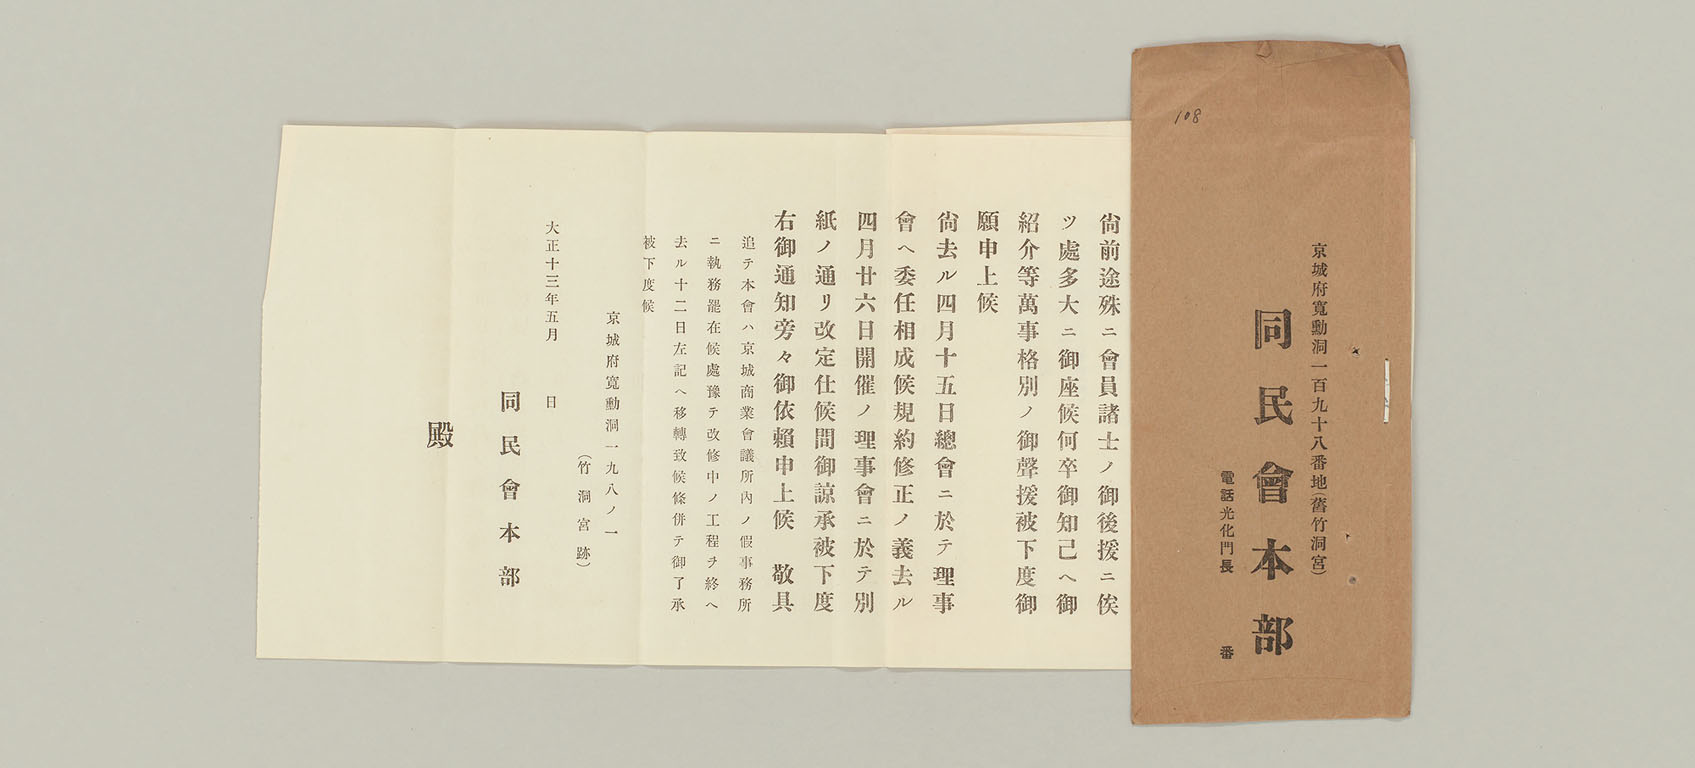 108
京城府寬勳洞一百九十八番地(舊竹洞宮)
同民會本部
電話光化門長　番
尙前途殊ニ會員諸士ノ御後援ニ俟
ツ處多大ニ御座候何卒御知己ヘ御
紹介等萬事格別ノ御聲援被下度御
願申上候
尙去ル四月十五日總會ニ於テ理事
會ヘ委任相成候規約修正ノ義去ル
四月廿六日開催ノ理事會ニ於テ別
紙ノ通リ改定仕候間御諒承被下度
右御通知旁々御依賴申上候　敬具
追テ本會ハ京城商業會議所內ノ假事務所
ニ執務罷在候處豫テ改修中ノ工程ヲ終ヘ
去ル十二日左記ヘ移轉致候條併テ御了承
被下度候
京城府寬勳洞一九八ノ一
(竹洞宮跡)
大正十三年五月　日
同民會本部
殿